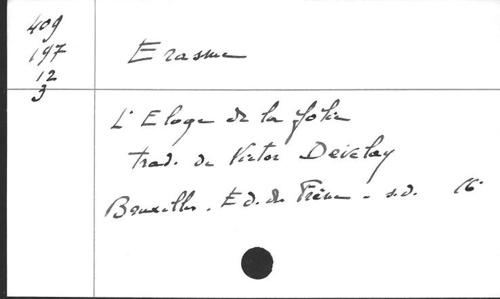 409
197
12
3
Erasme
L'Eloge de la folie
trad. de Victor Develay
Bruxelles. Ed. du Frêne - s.d. 16°